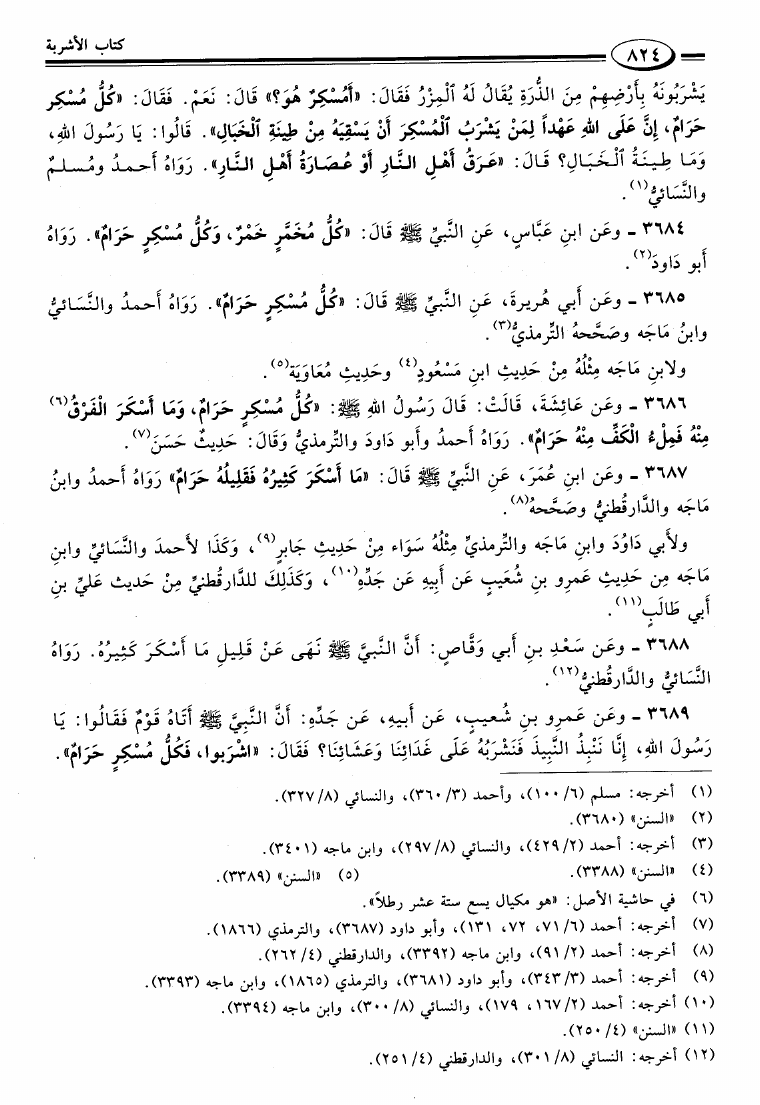 كتاب الأشربة
٨٢٤
يَشْرَبُونَهُ بِأَرْضِهِمْ مِنَ الذُّرَةِ يُقَالُ لَهُ الْمِزْرُ فَقَالَ: «أَمُسْكِرٌ هُوَ؟» قَالَ: نَعَمْ. فَقَالَ: «كُلُّ مُسْكِرٍ
حَرَامٌ، إِنَّ عَلَى اللهِ عَهْداً لِمَنْ يَشْرَبُ الْمُسْكِرَ أَنْ يَسْقِيَهُ مِنْ طِينَةِ الْخَبَالِ». قَالُوا: يَا رَسُولَ اللهِ،
وَمَا طِينَةُ الْخَبَالِ؟ قَالَ: «عَرَقُ أَهْلِ النَّارِ أَوْ عُصَارَةُ أَهْلِ النَّارِ». رَوَاهُ أحمدُ ومُسلمٌ
والنَّسَائيُّ(١).
٣٦٨٤ ـ وعَن ابنِ عَبَّاسٍ، عَنِ النَّبيِّ ﷺ قَالَ: «كُلُّ مُخَمَّرٍ خَمْرٌ، وَكُلُّ مُسْكِرٍ حَرَامٌ». رَوَاهُ
أبو دَاودَ(٢).
٣٦٨٥ ـ وعَن أبي هُريرةَ، عَنِ النَّبيِّ ﷺ قَالَ: «كُلُّ مُسْكِرٍ حَرَامٌ». رَوَاهُ أحمدُ والنَّسَائيُّ
وابنُ مَاجَه وصَحَّحهُ التِّرمذيُّ(٣).
ولابنِ مَاجَه مِثْلُهُ مِنْ حَدِيثِ ابنِ مَسْعُودٍ(٤) وحَدِيثِ مُعَاوَيَة(٥).
٣٦٨٦ ـ وعَن عَائِشَةَ، قَالَتْ: قَالَ رَسُولُ اللهِ ﷺ: «كُلُّ مُسْكِرٍ حَرَامٌ، وَمَا أَسْكَرَ الْفَرْقُ(٦)
مِنْهُ فَمِلْءُ الْكَفِّ مِنْهُ حَرَامٌ». رَوَاهُ أحمدُ وأبو دَاودَ والتِّرمذيُّ وَقَالَ: حَدِيثٌ حَسَنٌ(٧).
٣٦٨٧ ـ وعَن ابنِ عُمَرَ، عَنِ النَّبيِّ ﷺ قَالَ: «مَا أَسْكَرَ كَثِيرُهُ فَقَلِيلُهُ حَرَامٌ» رَوَاهُ أحمدُ وابنُ
مَاجَه والدَّارقُطنيُّ وصَحَّحهُ(٨).
ولأبي دَاوُدَ وابنِ مَاجَه والتِّرمذيِّ مِثْلُهُ سَوَاء مِنْ حَدِيثِ جَابرٍ(٩)، وَكَذَا لأحمدَ والنَّسَائيِّ وابنِ
مَاجَه مِن حَدِيثِ عَمرِو بنِ شُعَيبٍ عَن أبيهِ عَن جَدِّهِ(١٠)، وَكَذَلِكَ للدَّارقُطنيِّ مِنْ حَديث عَليِّ بنِ
أبي طَالَبٍ(١١).
٣٦٨٨ ـ وعَن سَعْدِ بنِ أبي وَقَّاصٍ: أَنَّ النَّبيَّ ﷺ نَهَى عَنْ قَلِيلِ مَا أَسْكَرَ كَثِيرُهُ. رَوَاهُ
النَّسَائيُّ والدَّارقُطنيُّ(١٢).
٣٦٨٩ ـ وعَن عَمرِو بنِ شُعيبٍ، عَن أبيهِ، عَن جَدِّهِ: أَنَّ النَّبيَّ ﷺ أَتَاهُ قَوْمٌ فَقَالُوا: يَا
رَسُولَ اللهِ، إِنَّا نَنْبِذُ النَّبِيذَ فَنَشْرَبُهُ عَلَى غَدَائِنَا وَعَشَائِنَا؟ فَقَالَ: «اشْرَبوا، فَكُلُّ مُسْكِرٍ حَرَامٌ».
(١) أخرجه: مسلم (٦/ ١٠٠)، وأحمد (٣/ ٣٦٠)، والنسائي (٨/ ٣٢٧).
(٢) «السنن» (٣٦٨٠).
(٣) أخرجه: أحمد (٢/ ٤٢٩)، والنسائي (٨/ ٢٩٧)، وابن ماجه (٣٤٠١).
(٤) «السنن» (٣٣٨٨). (٥) «السنن» (٣٣٨٩).
(٦) في حاشية الأصل: «هو مكيال يسع ستة عشر رطلاً».
(٧) أخرجه: أحمد (٦/ ٧١، ٧٢، ١٣١)، وأبو داود (٣٦٨٧)، والترمذي (١٨٦٦).
(٨) أخرجه: أحمد (٢/ ٩١)، وابن ماجه (٣٣٩٢)، والدارقطني (٤/ ٢٦٢).
(٩) أخرجه: أحمد (٣/ ٣٤٣)، وأبو داود (٣٦٨١)، والترمذي (١٨٦٥)، وابن ماجه (٣٣٩٣).
(١٠) أخرجه: أحمد (٢/ ١٦٧، ١٧٩)، والنسائي (٨/ ٣٠٠)، وابن ماجه (٣٣٩٤).
(١١) «السنن» (٤/ ٢٥٠).
(١٢) أخرجه: النسائي (٨/ ٣٠١)، والدارقطني (٤/ ٢٥١).